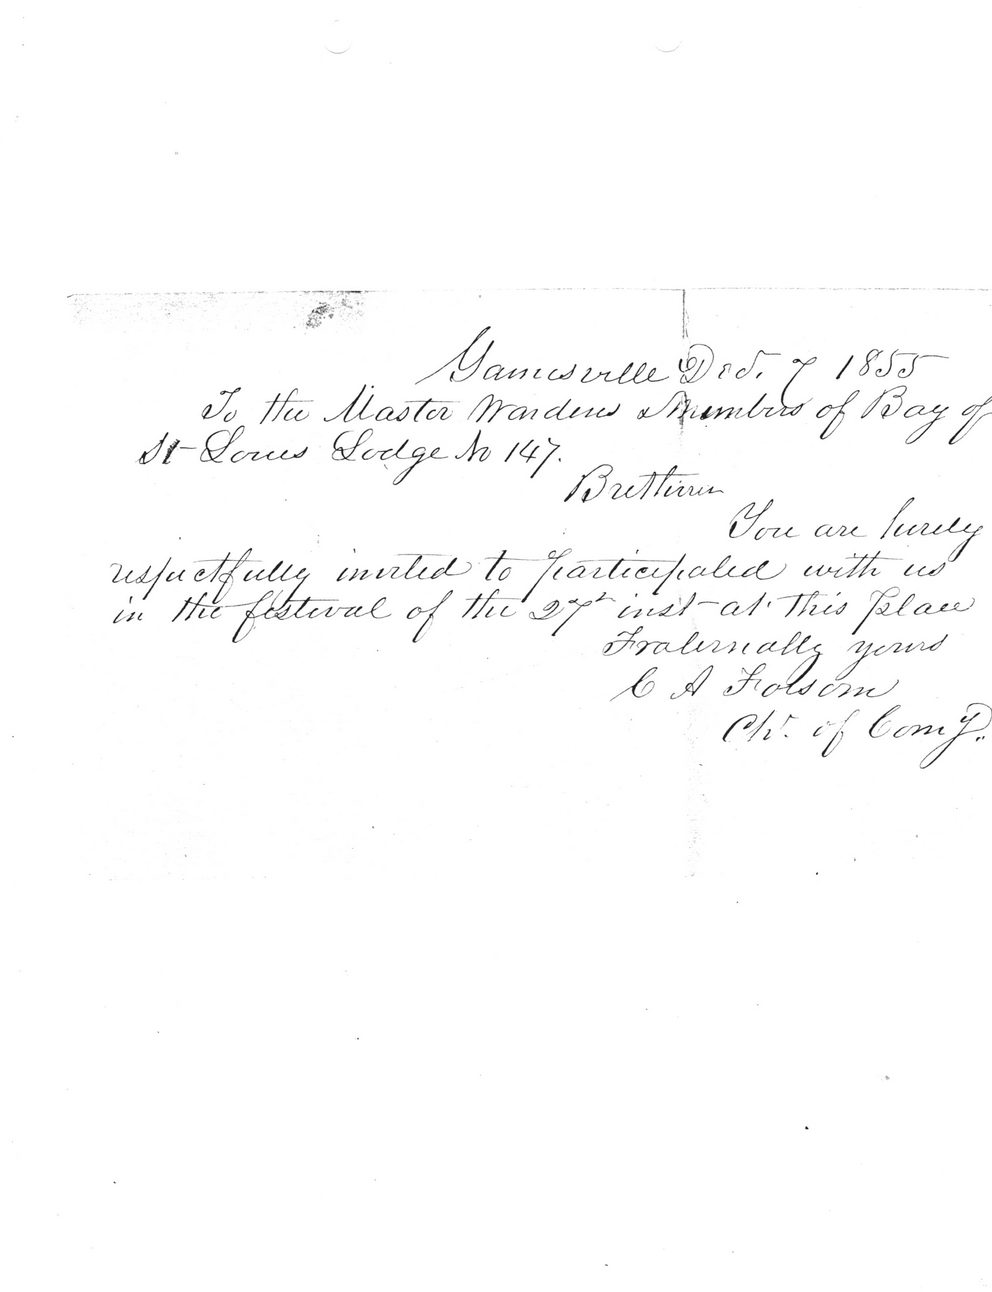 Gainesville Dec. 7 1855
To the Master Wardens & members of Bay of
St Louis Lodge No 147.
Bretheren
You are hereby
respectfully invited to participated with us
in the festival of the 27th inst at this place
Fraternally yours
C A Folsom
Chr. of Comy.